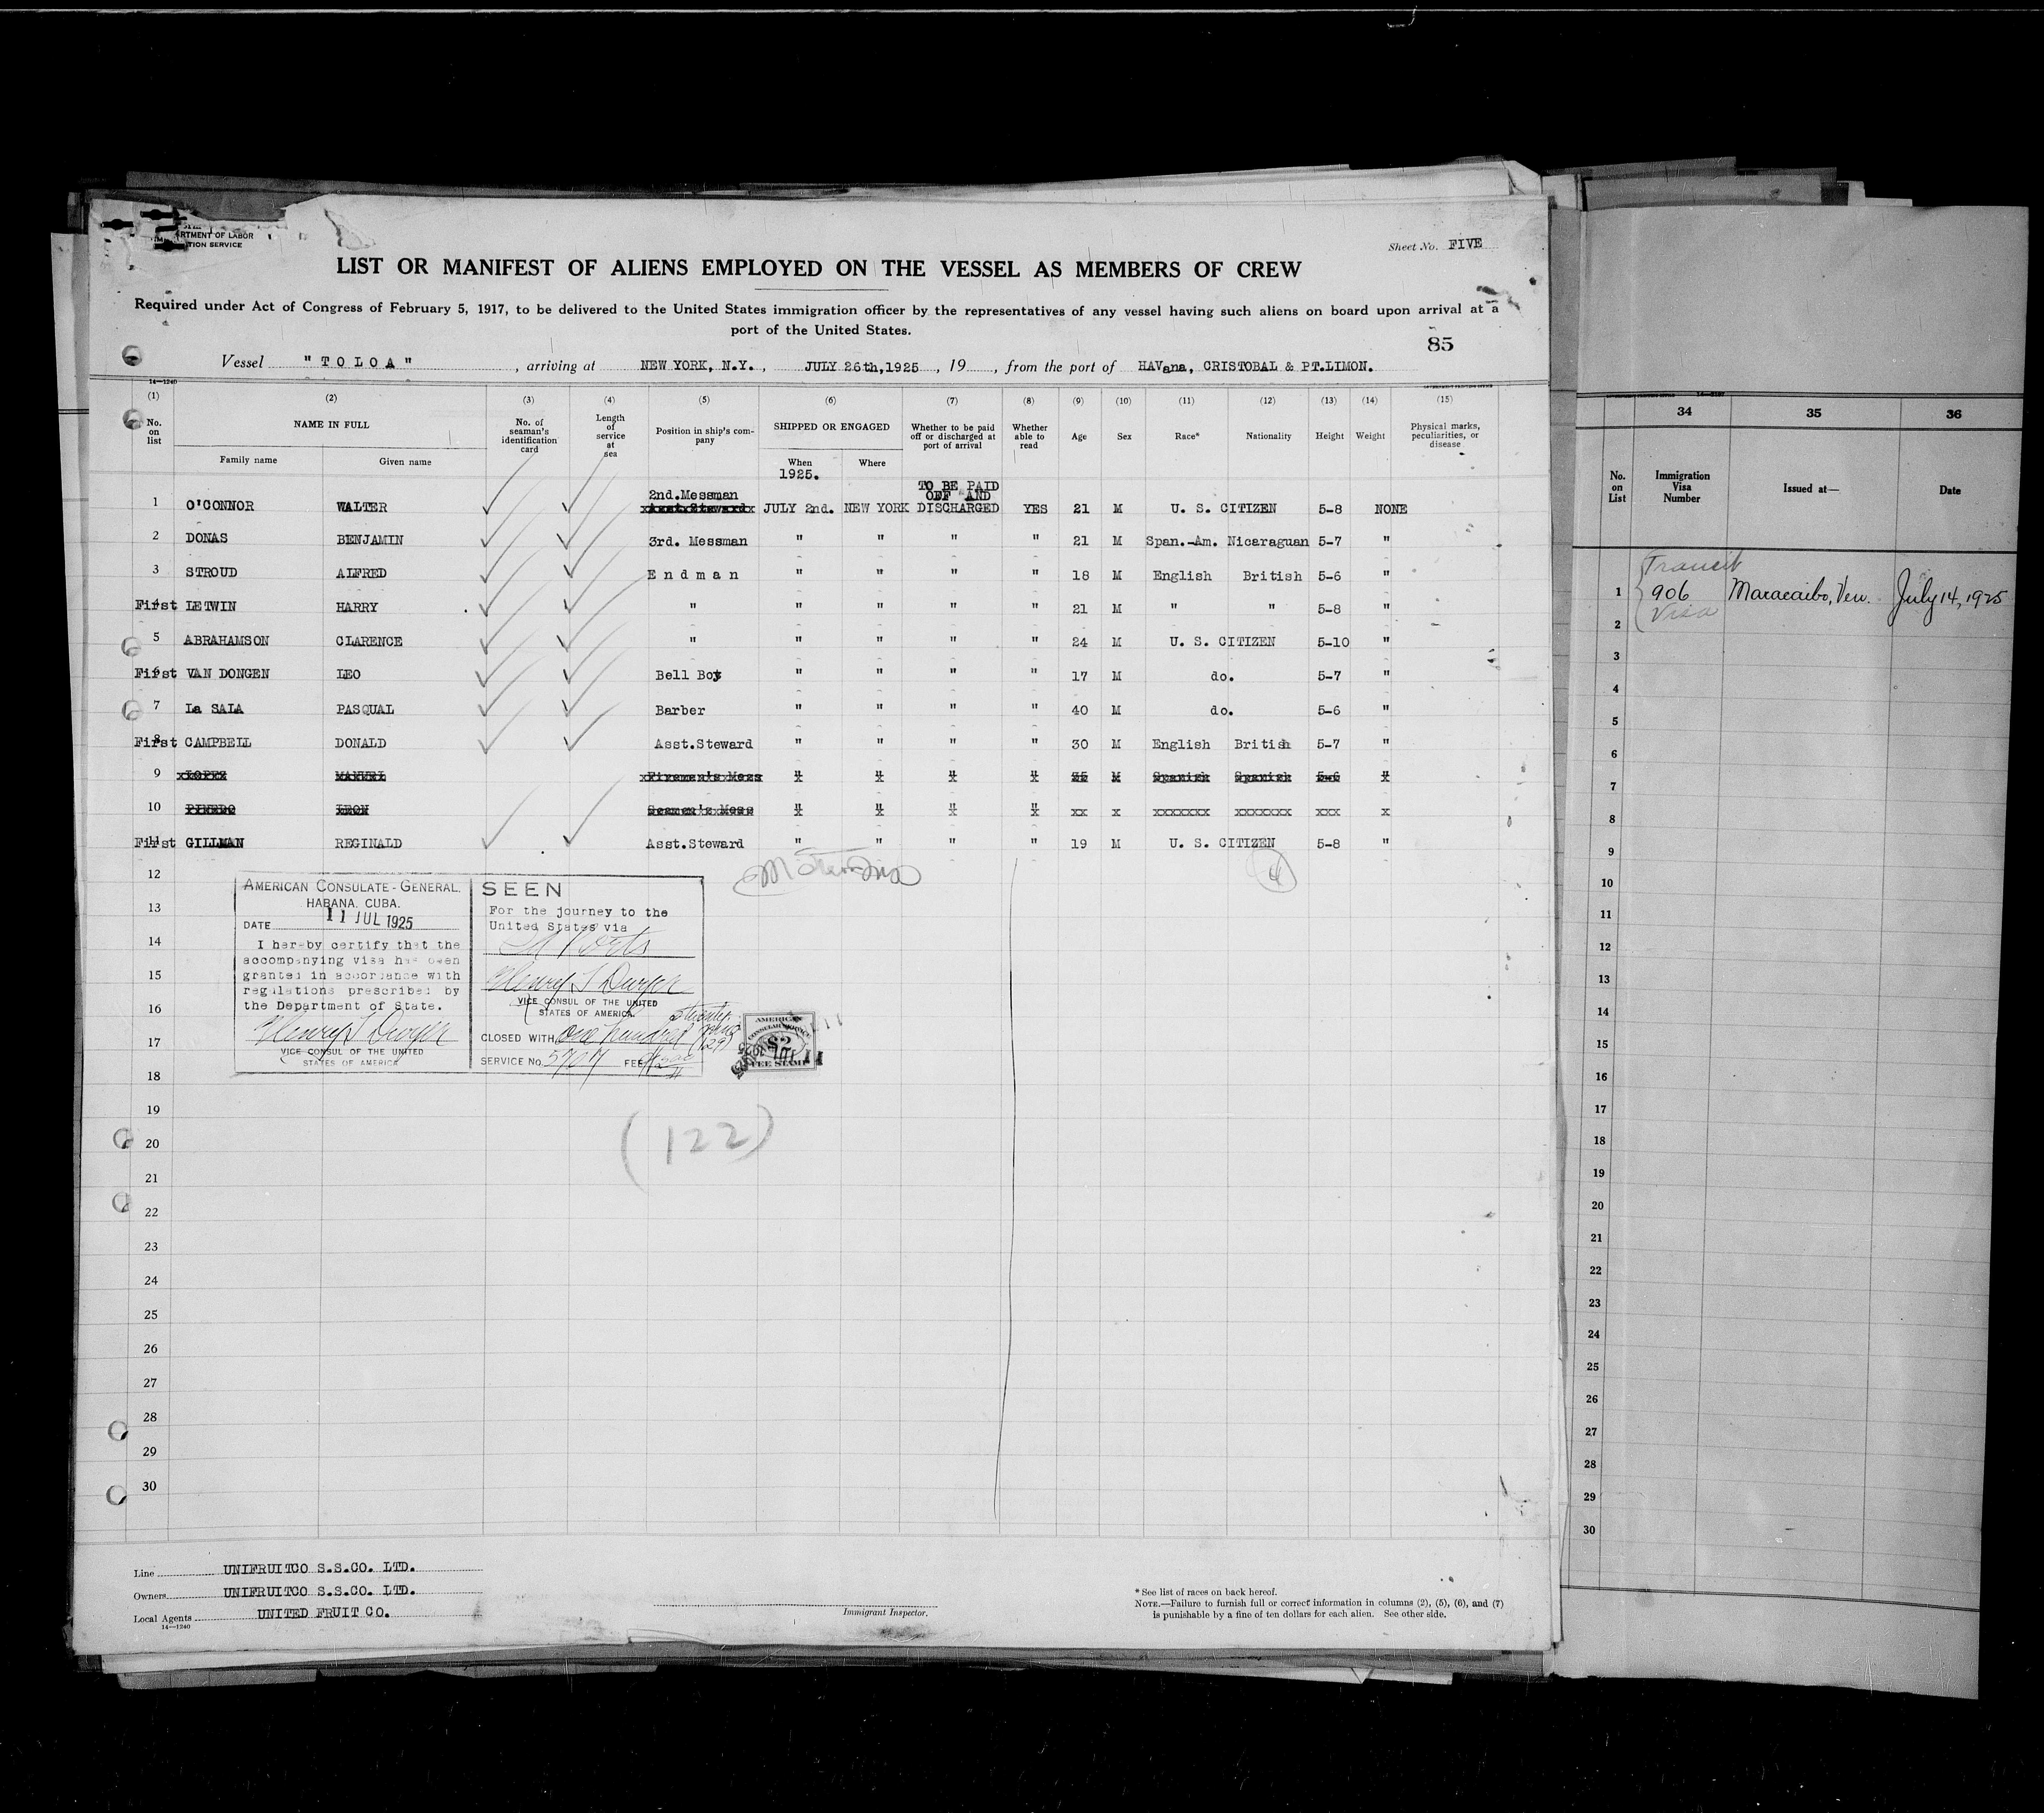 RTMENT OF LABOR
TION SERVICE
Sheet No. FIVE
LIST OR MANIFEST OF ALIENS EMPLOYED ON THE VESSEL AS MEMBERS OF CREW
Required under Act of Congress of February 5, 1917, to be delivered to the United States immigration officer by the representatives of any vessel having such aliens on board upon arrival at a
port of the United States.
85
Vessel "TOLOA", arriving at NEW YORK, N.Y., JULY 26th,1925, 19, from the port of HAVana, CRISTOBAL & PT.LIMON.
14—1240
(1) (2) (3) (4) (5) (6) (7) (8) (9) (10) (11) (12) (13) (14) (15)
No. on list NAME IN FULL No. of seaman's identification card Length of service at sea Position in ship's company SHIPPED OR ENGAGED Whether to be paid off or discharged at port of arrival Whether able to read Age Sex Race* Nationality Height Weight Physical marks, peculiarities, or disease
Family name Given name When Where
1925.
1 O'CONNOR WALTER 2nd.Messman Asst.Steward JULY 2nd. NEW YORK TO BE PAID OFF AND DISCHARGED YES 21 M U. S. CITIZEN 5-8 NONE
2 DONAS BENJAMIN 3rd. Messman " " " " 21 M Span.-Am. Nicaraguan 5-7 "
3 STROUD ALFRED Endman " " " " 18 M English British 5-6 "
First 4 LETWIN HARRY " " " " " 21 M " " 5-8 "
5 ABRAHAMSON CLARENCE " " " " " 24 M U. S. CITIZEN 5-10 "
First 6 VAN DONGEN LEO Bell Boy " " " " 17 M do. 5-7 "
7 La SALA PASQUAL Barber " " " " 40 M do. 5-6 "
First 8 CAMPBELL DONALD Asst.Steward " " " " 30 M English British 5-7 "
9 LOPEZ MANUEL Fireman's Mess " " " " 35 M Spanish Spanish 5-6 "
10 PINEDO LEON Seamen's Mess " " " " xx x xxxxxxx xxxxxxx xxx x
First 11 GILLMAN REGINALD Asst.Steward " " " " 19 M U. S. CITIZEN 5-8 "
4
12
13
14
15
16
17
18
19
20
21
22
23
24
25
26
27
28
29
30
AMERICAN CONSULATE-GENERAL,
HABANA, CUBA.
DATE 11 JUL 1925
I hereby certify that the
accompanying visa has been
granted in accordance with
regulations prescribed by
the Department of State.
Henry T Dwyer
VICE CONSUL OF THE UNITED
STATES OF AMERICA
SEEN
For the journey to the
United States via
Henry T Dwyer
VICE CONSUL OF THE UNITED
STATES OF AMERICA.
CLOSED WITH one hundred twenty nine (129)
SERVICE No. 5707 FEE
AMERICAN
CONSULAR SERVICE
$2
FEE STAMP
(122)
Line UNIFRUITCO S.S.CO. LTD.
Owners UNIFRUITCO S.S.CO. LTD.
Local Agents UNITED FRUIT CO.
14—1240
Immigrant Inspector.
* See list of races on back hereof.
NOTE.—Failure to furnish full or correct information in columns (2), (5), (6), and (7)
is punishable by a fine of ten dollars for each alien. See other side.
34 35 36
No. on List Immigration Visa Number Issued at— Date
Transit
1 906 Maracaibo, Ven. July 14, 1925
Visa
2
3
4
5
6
7
8
9
10
11
12
13
14
15
16
17
18
19
20
21
22
23
24
25
26
27
28
29
30